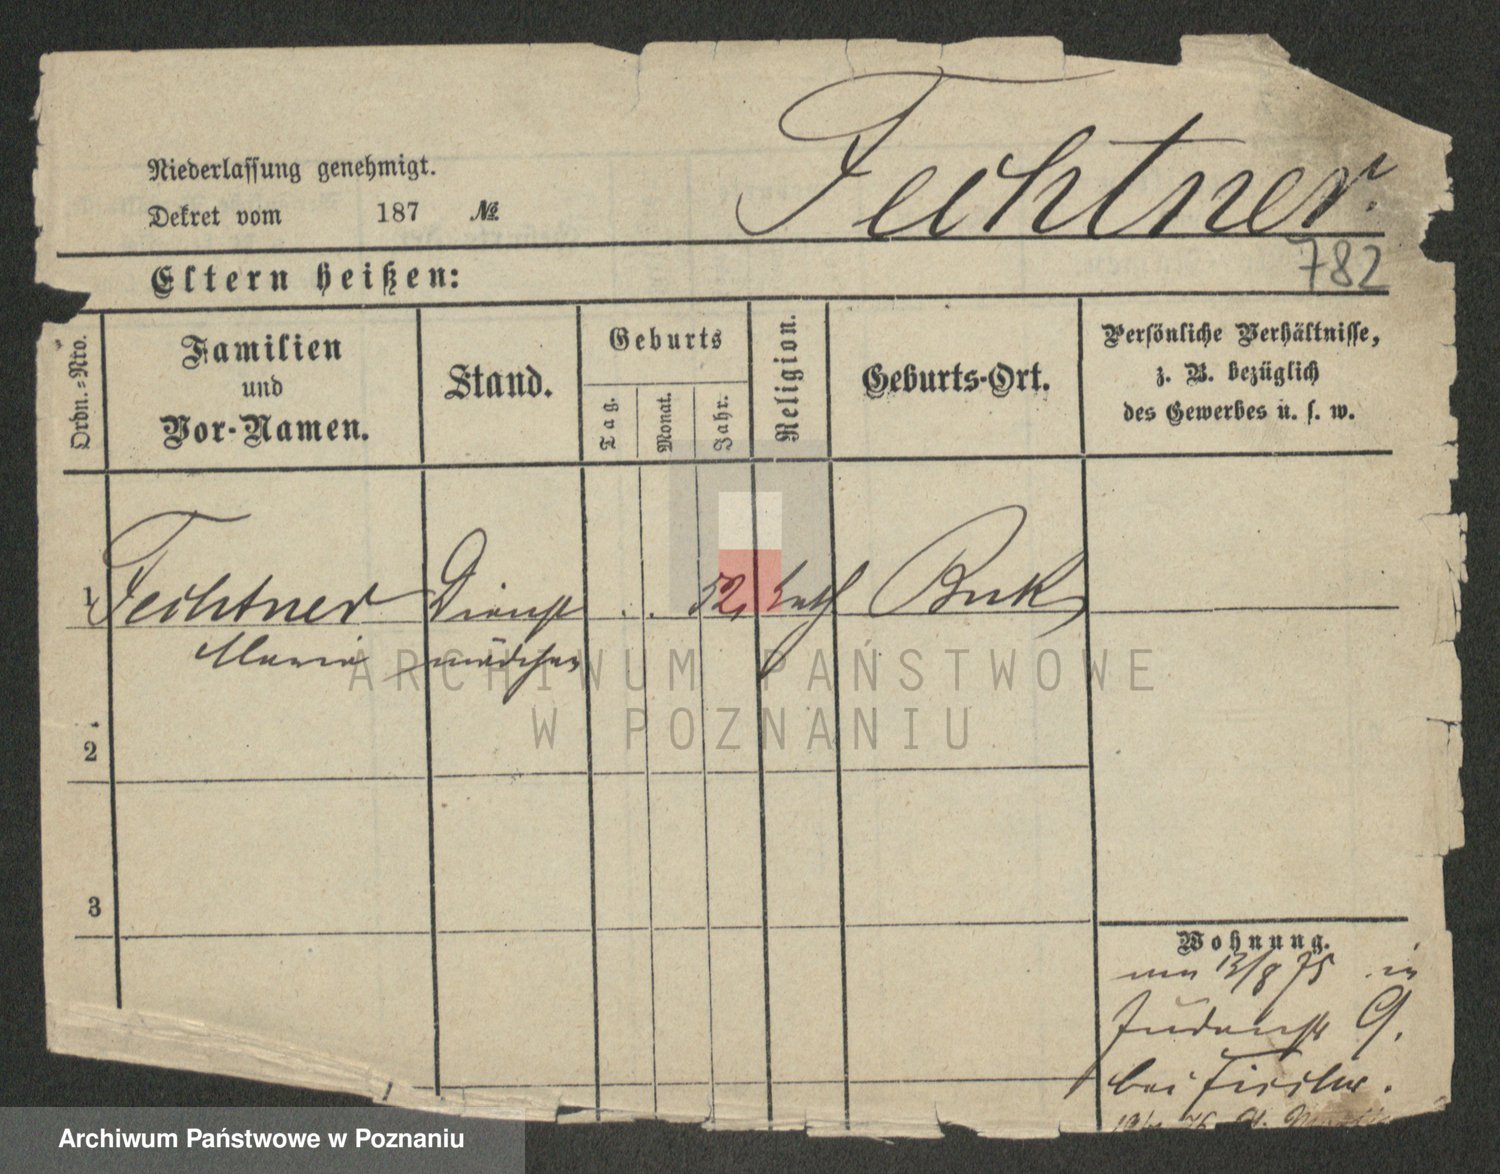 Fechtner.
Niederlassung genehmigt.
Dekret vom 187 №
782
Eltern heißen:
Ordn.-Nro.
Familien
und
Vor-Namen.
Stand.
Geburts
Tag.
Monat.
Jahr.
Religion.
Geburts-Ort.
Persönliche Verhältnisse,
z. B. bezüglich
des Gewerbes u. s. w.
1 Fechtner Dienst . . 52, kath Buk
Maria mädchen
2
3
Wohnung.
13/8 75 in
Judenstr 9.
bei
ARCHIWUM PAŃSTWOWE
W POZNANIU
Archiwum Państwowe w Poznaniu